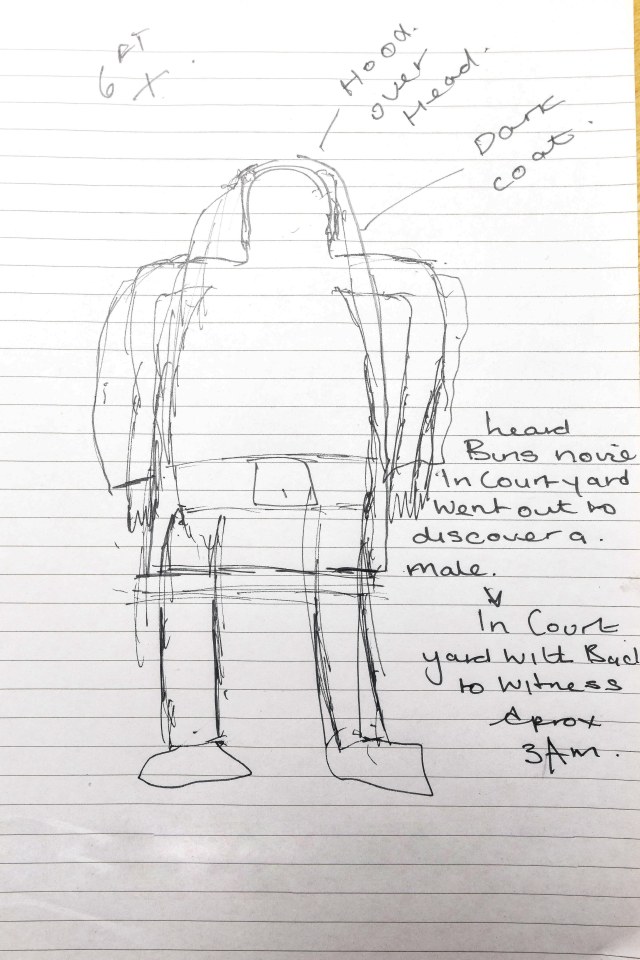 6 FT
X.
Hood.
over
Head.
Dark
coat.
heard
Bins novie
In Courtyard
Went out to
discover a.
male.
In Court
yard with Back
to witness
Aprox
3Am.